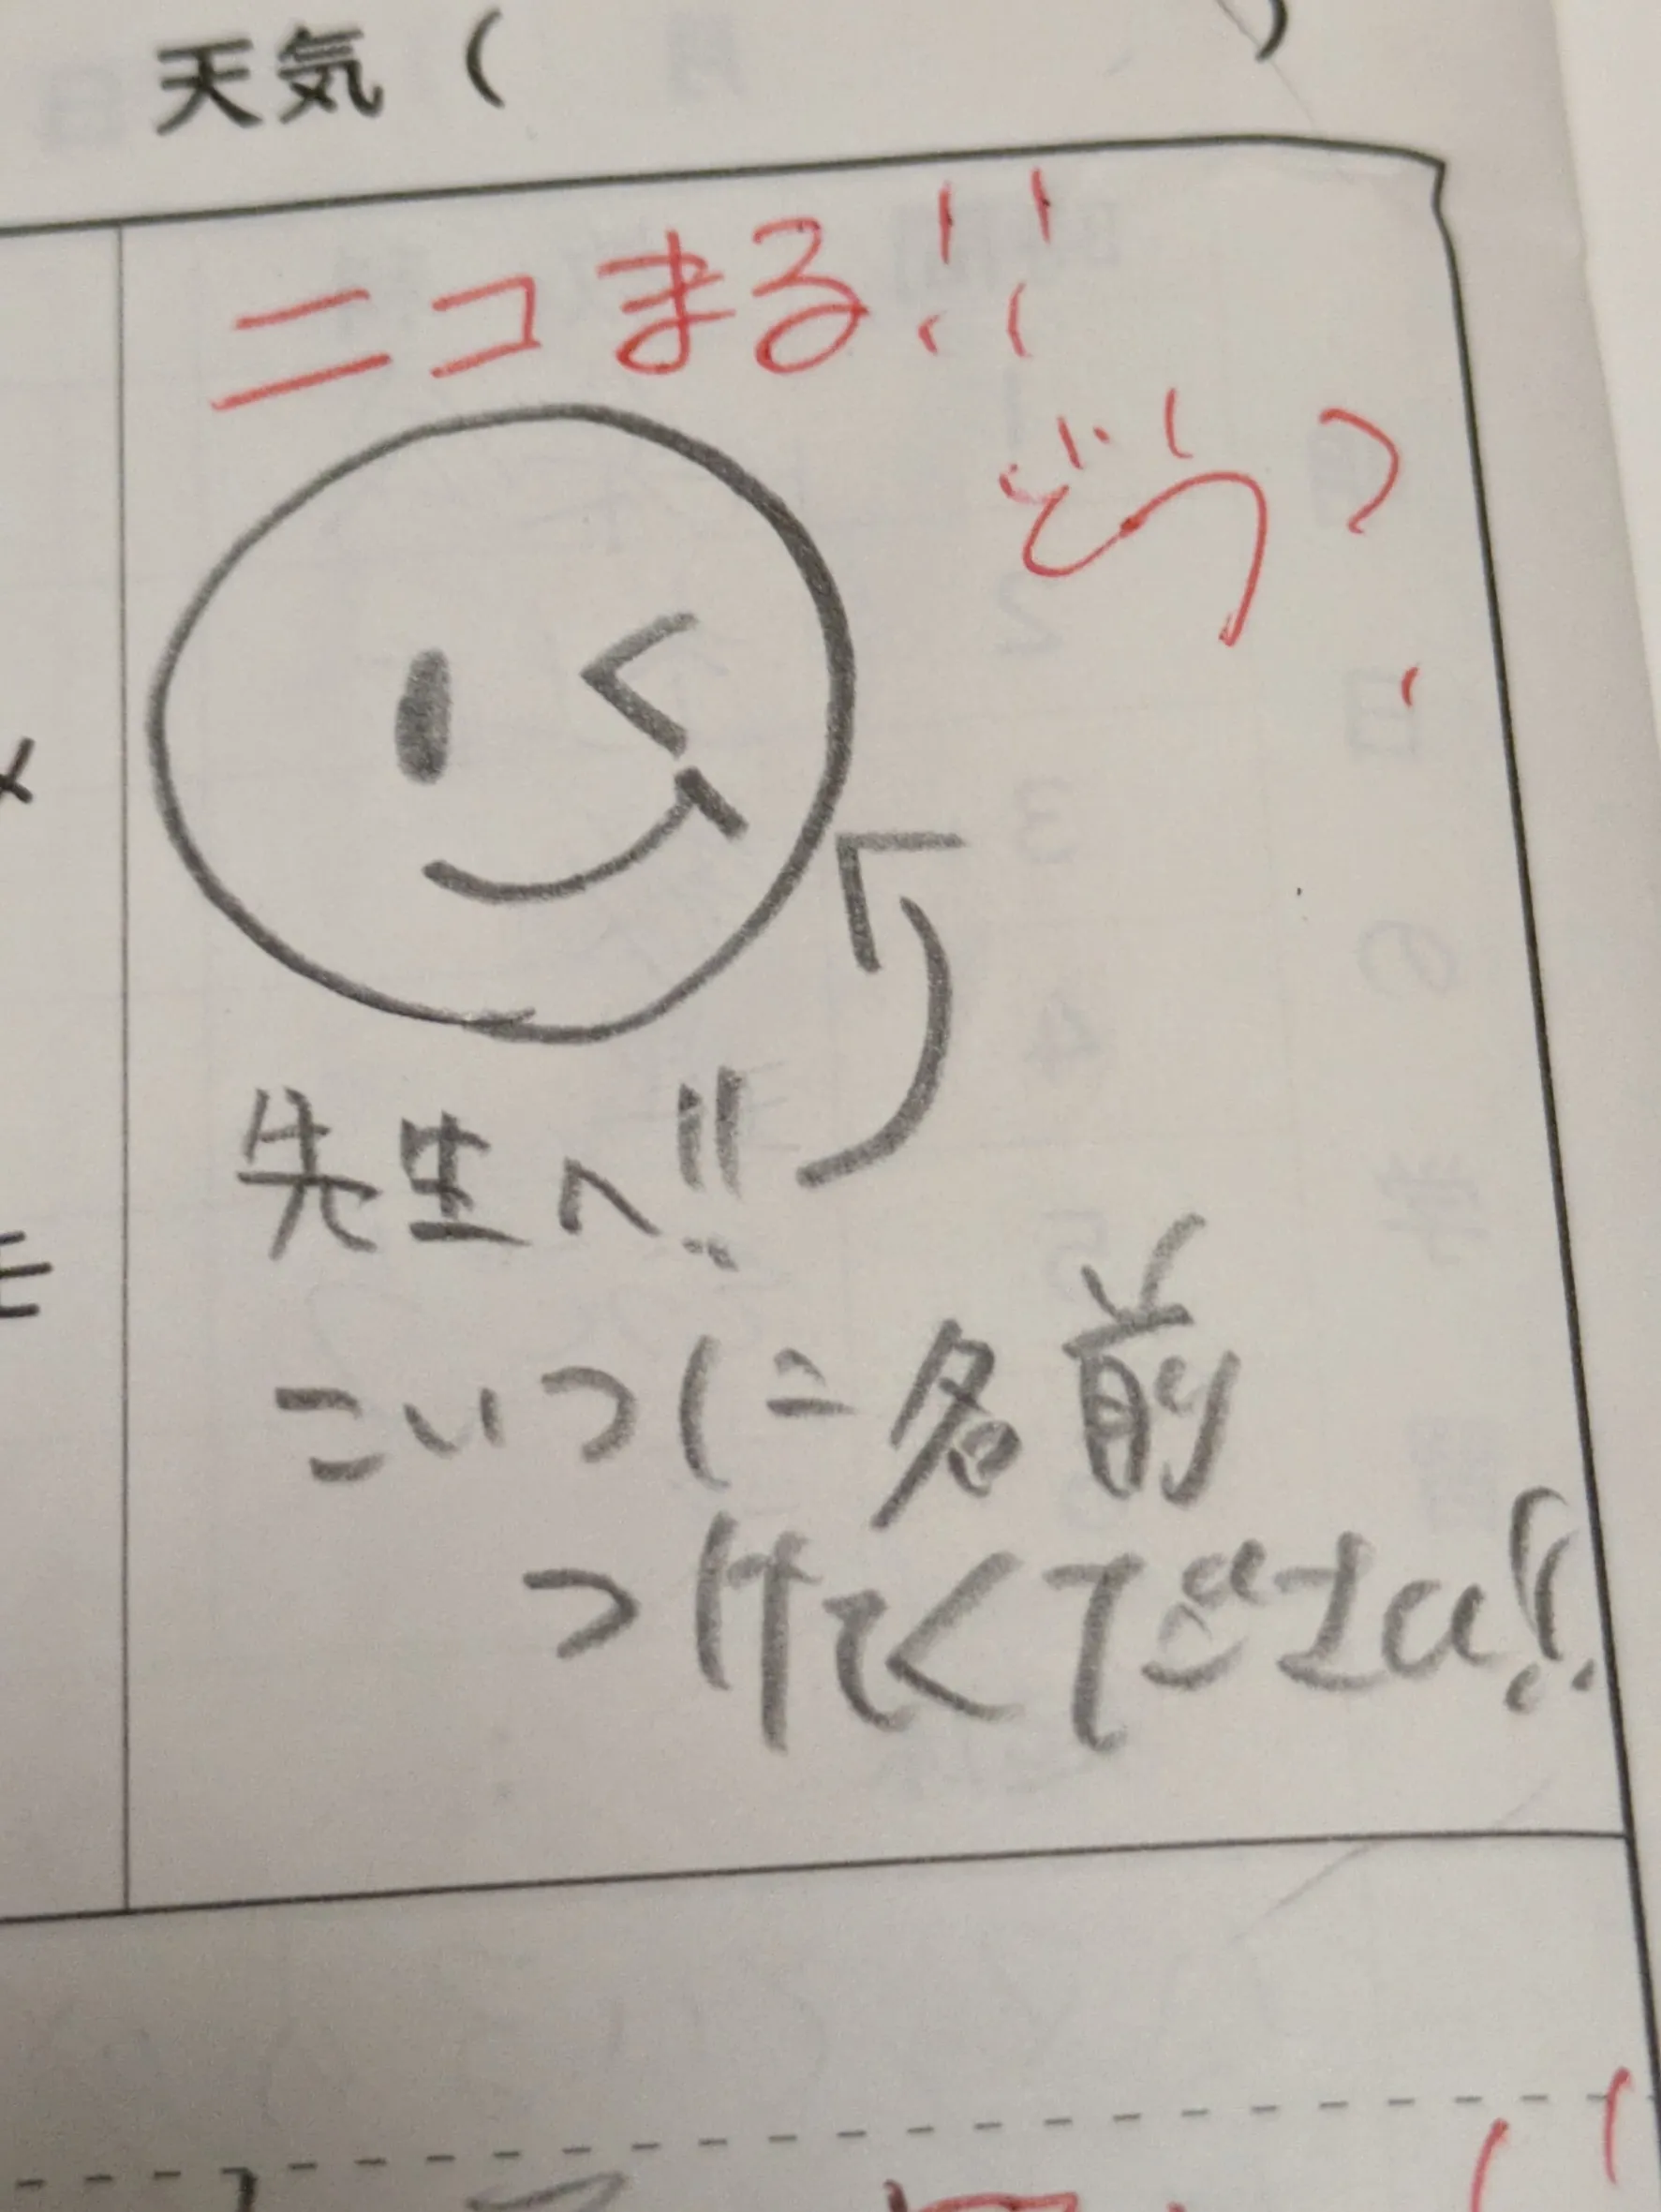 天気（　　　）
ニコまる!!
どう?
先生へ!!
こいつに名前
つけてください!!
メ
モ